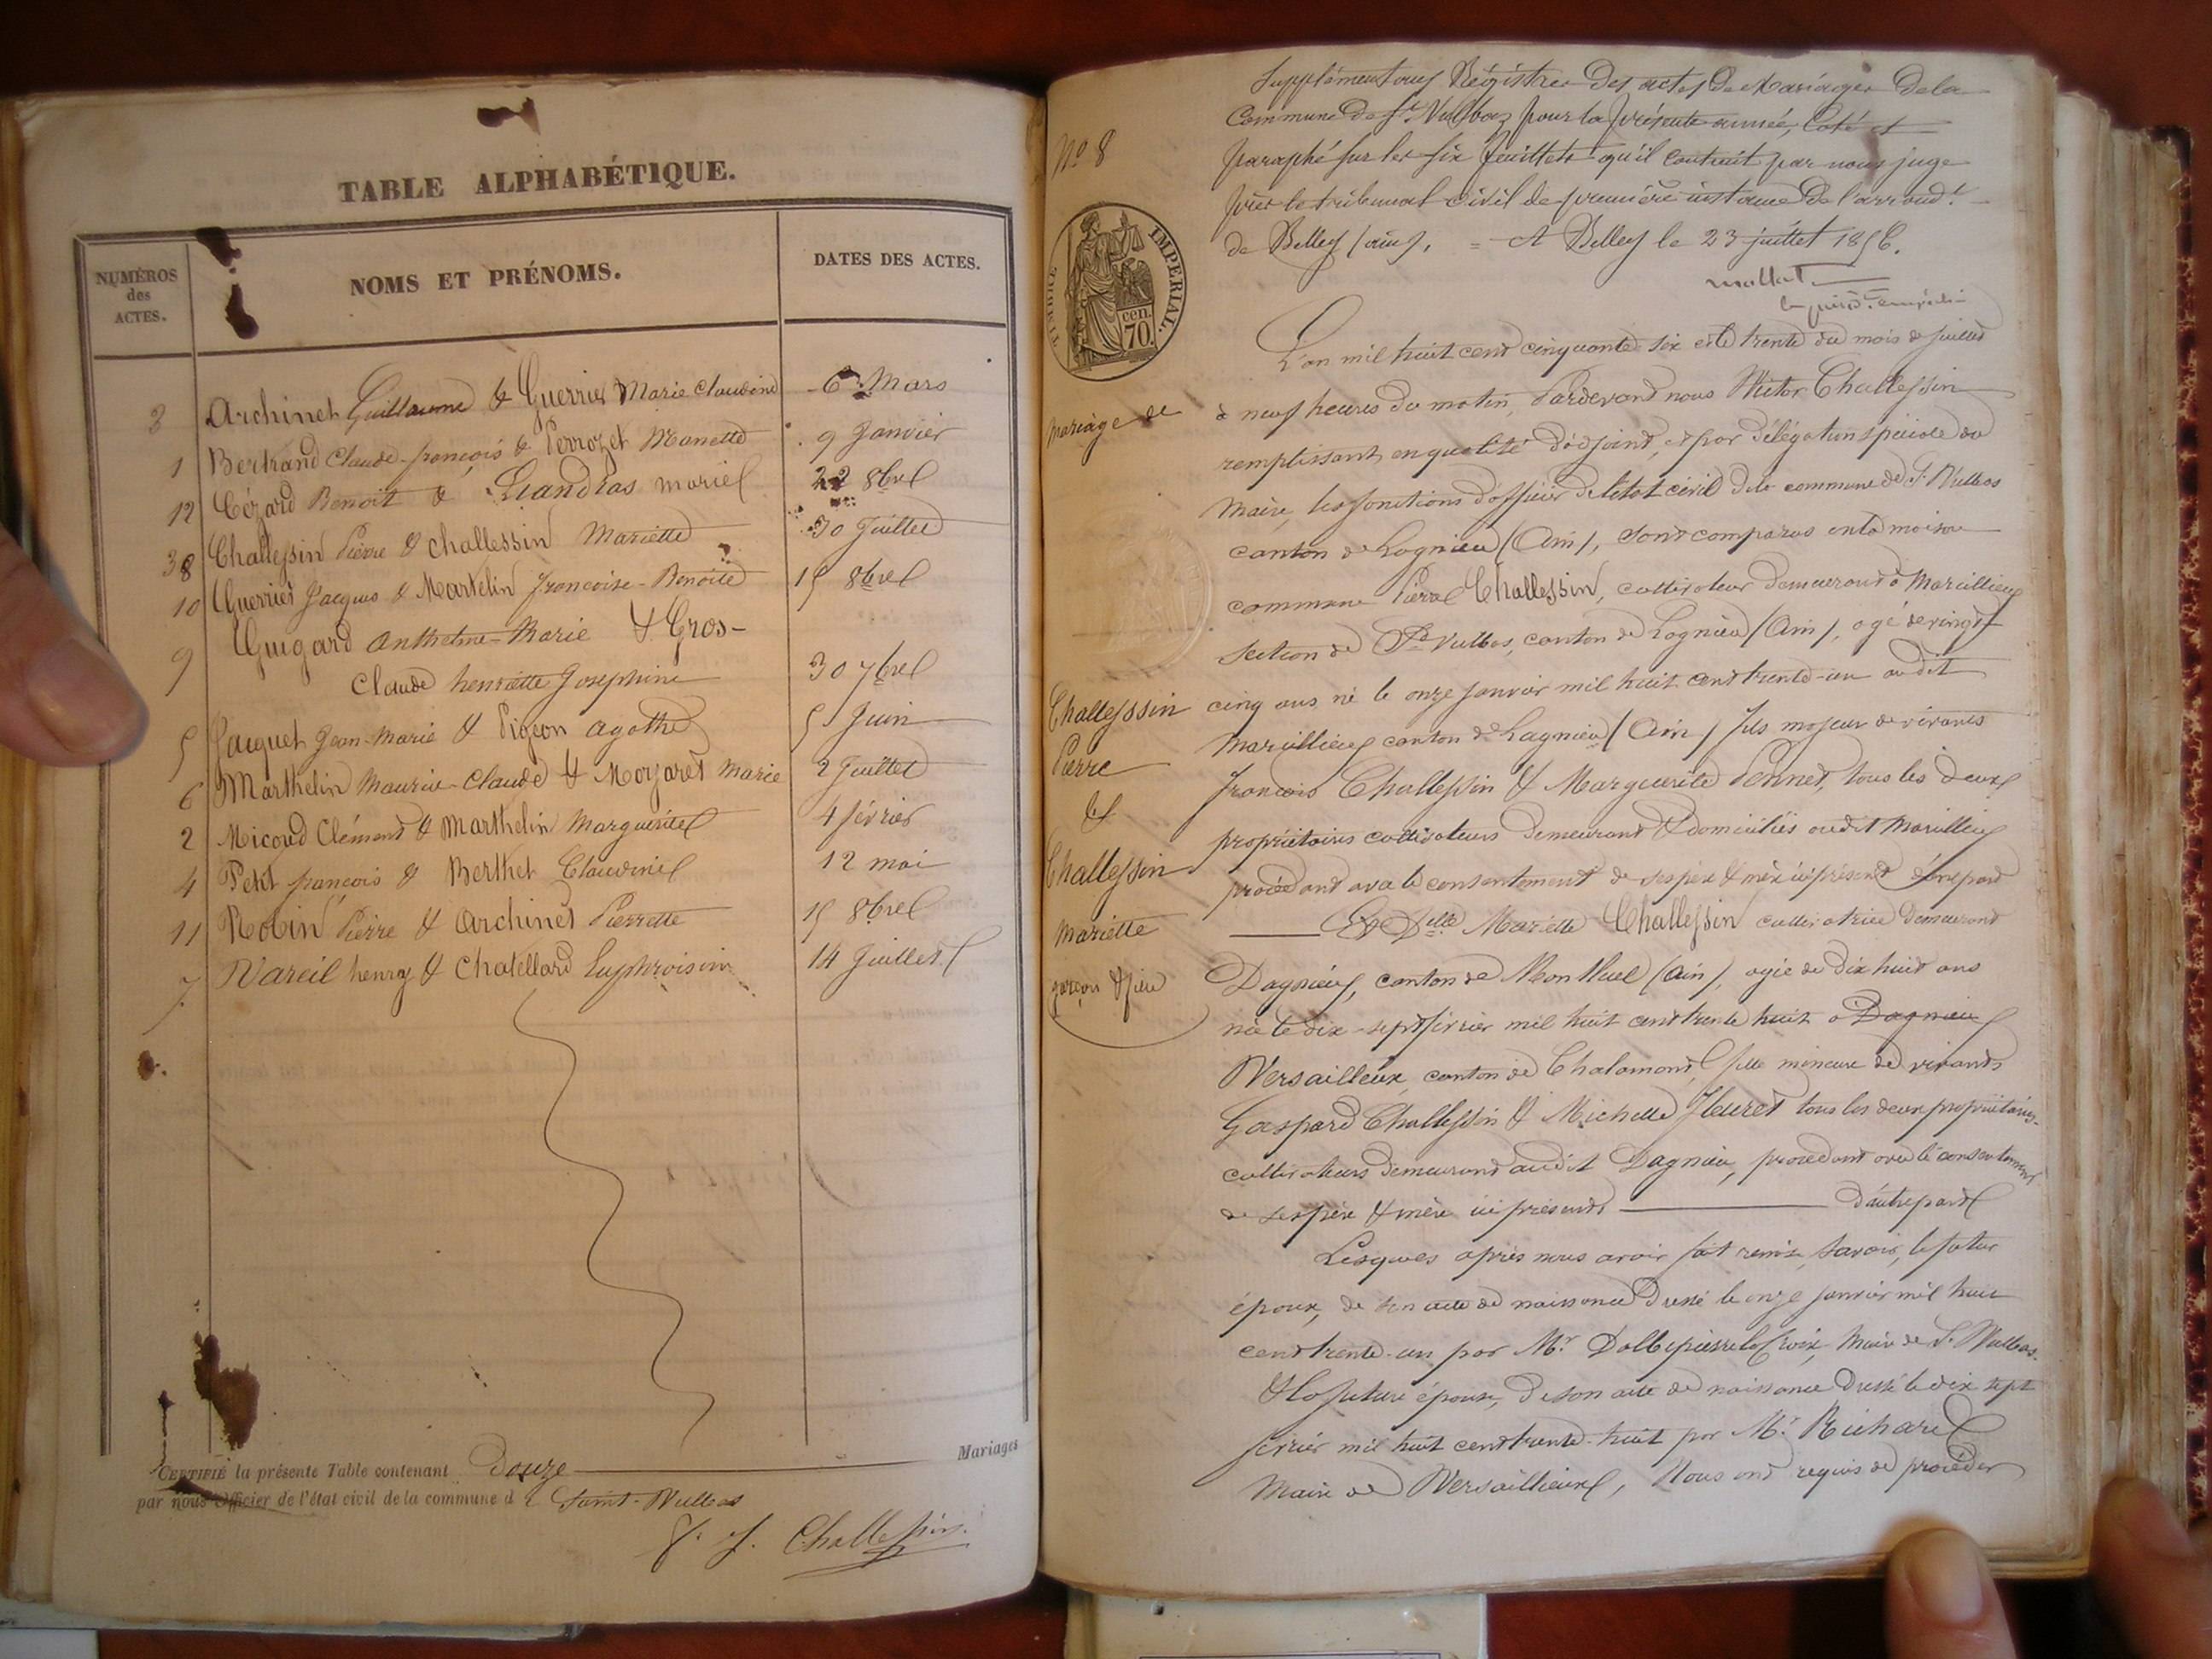 TABLE ALPHABÉTIQUE.
NUMÉROS
des
ACTES.
NOMS ET PRÉNOMS.
DATES DES ACTES.
3 Archinet Guillaume & Guerrier Marie Claudine 6 Mars
1 Bertrand Claude-françois & Perrozet Manette 9 Janvier
12 Cézard Benoit & Liandras marie 22 8bre
8 Challessin Pierre & Challessin Mariette 30 Juillet
10 Guerrier Jacques & Martelin françoise-Benoite 15 8bre
9 Guigard Anthelme-Marie & Gros-
Claude henriette Josephine 30 7bre
5 Jacquet Jean-Marie & Pigeon agathe 5 Juin
6 Marthelin Maurice-Claude & Moyaret Marie 2 Juillet
2 Micoud Clément & Marthelin Marguerite 4 février
4 Petit françois & Berthet Claudine 12 mai
11 Robin Pierre & Archinet Pierrette 15 8bre
7 Vareil henry & Chatellard Euphroisine 14 Juillet
CERTIFIÉ la présente Table contenant douze Mariages
par nous Officier de l'état civil de la commune de Saint-Vulbas
Challessin
Supplément aux Régistres des actes de Mariages de la
Commune de St. Vulbaz pour la présente année, Coté et
paraphé sur les six feuillets qu'il contient par nous juge
près le tribunal civil de première instance de l'arrond.t
de Belley (ain), = A Belley le 23 juillet 1856.
mollat
le présid.t empêché
No 8
TIMBRE IMPERIAL.
70 cen.
Mariage de
Challessin
Pierre
&
Challessin
Mariette
garçon & fille
L'an mil huit cent cinquante-six et le trente du mois de juillet
à neuf heures du matin, Pardevant nous Victor Challessin
remplissant en qualité d'adjoint, et par délégation spéciale du
Maire, les fonctions d'officier de l'état civil de la commune de St. Vulbas
canton de Lagnieu (Ain), sont comparus en la maison
commune Pierre Challessin, cultivateur demeurant à Marcillieux
section de St. Vulbas, canton de Lagnieu (Ain), agé de vingt
cinq ans né le onze janvier mil huit cent trente-un audit
Marcillieux canton de Lagnieu (Ain) fils majeur de vivants
francois Challessin & Marguerite Pennet, tous les deux
propriétaires cultivateurs demeurant & domiciliés audit Marcillieux
procédant avec le consentement de ses père & mère ici présents d'une part
Et Delle Mariette Challessin cultivatrice demeurant
Dagnieux, canton de Mon Iluel (Ain), agée de dix huit ans
née le dix-sept février mil huit cent trente huit à Dagnieu
Versailleux, canton de Chalamont, fille mineure de vivants
Gaspard Challessin & Michelle fleuret tous les deux propriétaires-
cultivateurs demeurant audit Dagnieu, procédant avec le consentement
de ses père & mère ici présents d'autre part
Lesquels après nous avoir fait remise, savoir, le futur
époux, de son acte de naissance dressé le onze janvier mil huit
cent trente-un par Mr. Dallepierre Maire de St. Vulbas.
& la future épouse, de son acte de naissance dressé le dix sept
février mil huit cent trente-huit par Mr. Richard
Maire de Versaillieux, Nous ont requis de procéder